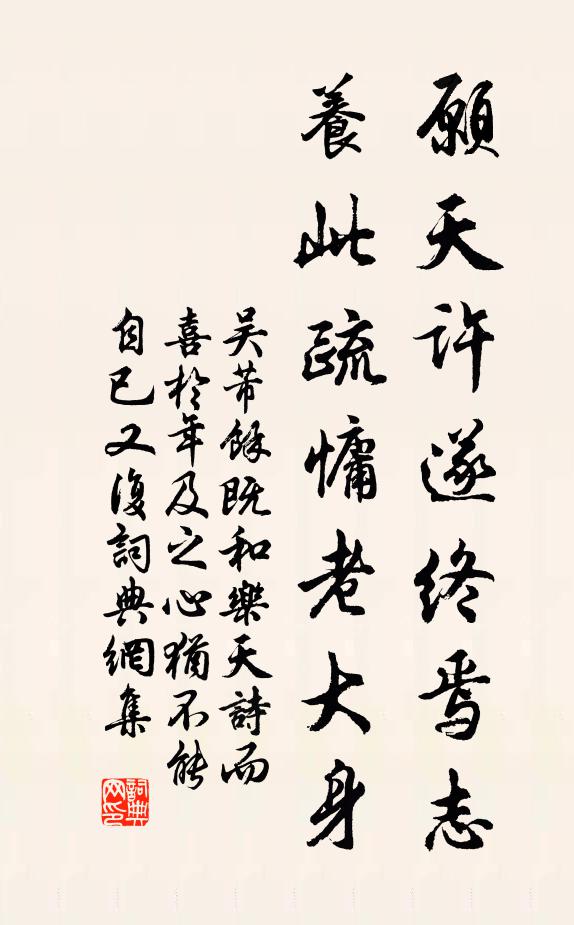 願天許遂終焉志
養此疏慵老大身
吴芾餘既和樂天詩而
喜於年及之心猶不能
自已又復詞典網集
詞典網印